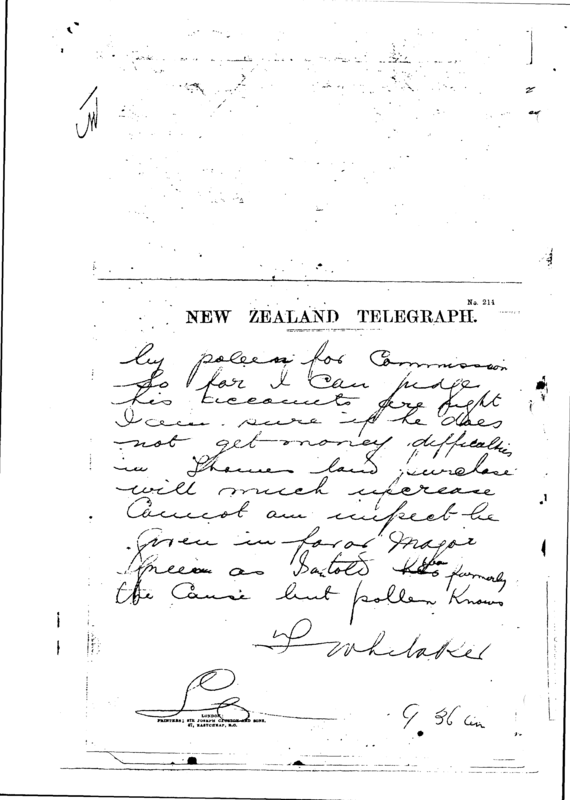 JW
No. 214
NEW ZEALAND TELEGRAPH.
by pollen for Commission
So far I can judge
his accounts are right
I am sure if he does
not get money difficulties
in Thames land purchase
will much increase
Cannot an imprest be
given in favor Major
as I a told formerly
the Cause but pollen Knows
Whitaker
LONDON
PRINTERS; SIR JOSEPH CAUSTON AND SONS,
47, EASTCHEAP, E.C.
9 36